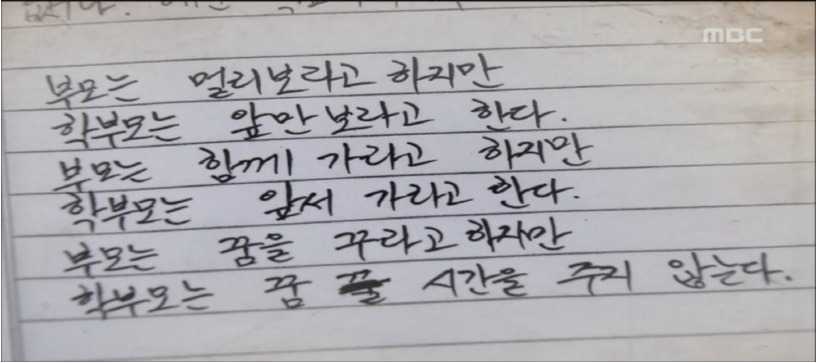 MBC
부모는 멀리보라고 하지만
학부모는 앞만 보라고 한다.
부모는 함께 가라고 하지만
학부모는 앞서 가라고 한다.
부모는 꿈을 꾸라고 하지만
학부모는 꿈 꿀 시간을 주지 않는다.